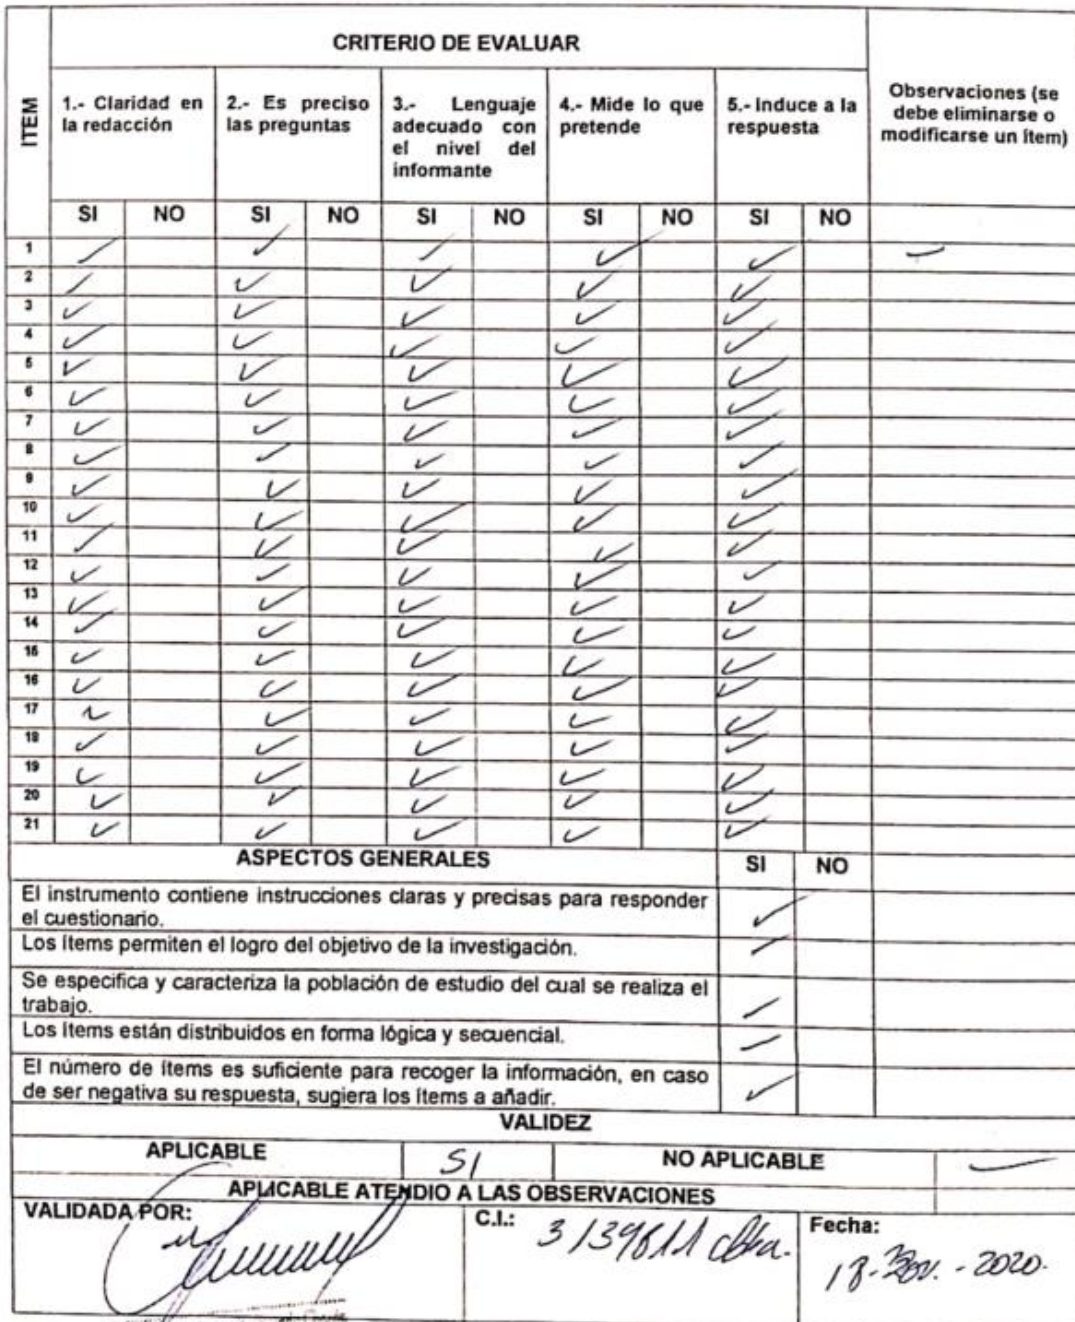 CRITERIO DE EVALUAR
ITEM
1.- Claridad en
la redacción
2.- Es preciso
las preguntas
3.- Lenguaje
adecuado con
el nivel del
informante
4.- Mide lo que
pretende
5.- Induce a la
respuesta
Observaciones (se
debe eliminarse o
modificarse un ítem)
SI NO SI NO SI NO SI NO SI NO
1 ✓ ✓ ✓ ✓ ✓ —
2 ✓ ✓ ✓ ✓ ✓
3 ✓ ✓ ✓ ✓ ✓
4 ✓ ✓ ✓ ✓ ✓
5 ✓ ✓ ✓ ✓ ✓
6 ✓ ✓ ✓ ✓ ✓
7 ✓ ✓ ✓ ✓ ✓
8 ✓ ✓ ✓ ✓ ✓
9 ✓ ✓ ✓ ✓ ✓
10 ✓ ✓ ✓ ✓ ✓
11 ✓ ✓ ✓ ✓ ✓
12 ✓ ✓ ✓ ✓ ✓
13 ✓ ✓ ✓ ✓ ✓
14 ✓ ✓ ✓ ✓ ✓
15 ✓ ✓ ✓ ✓ ✓
16 ✓ ✓ ✓ ✓ ✓
17 ✓ ✓ ✓ ✓ ✓
18 ✓ ✓ ✓ ✓ ✓
19 ✓ ✓ ✓ ✓ ✓
20 ✓ ✓ ✓ ✓ ✓
21 ✓ ✓ ✓ ✓ ✓
ASPECTOS GENERALES SI NO
El instrumento contiene instrucciones claras y precisas para responder
el cuestionario. ✓
Los ítems permiten el logro del objetivo de la investigación. ✓
Se especifica y caracteriza la población de estudio del cual se realiza el
trabajo. ✓
Los ítems están distribuidos en forma lógica y secuencial. ✓
El número de ítems es suficiente para recoger la información, en caso
de ser negativa su respuesta, sugiera los ítems a añadir. ✓
VALIDEZ
APLICABLE SI NO APLICABLE —
APLICABLE ATENDIO A LAS OBSERVACIONES
VALIDADA POR: C.I.: 3139611 cbba. Fecha:
18-Nov.-2020.